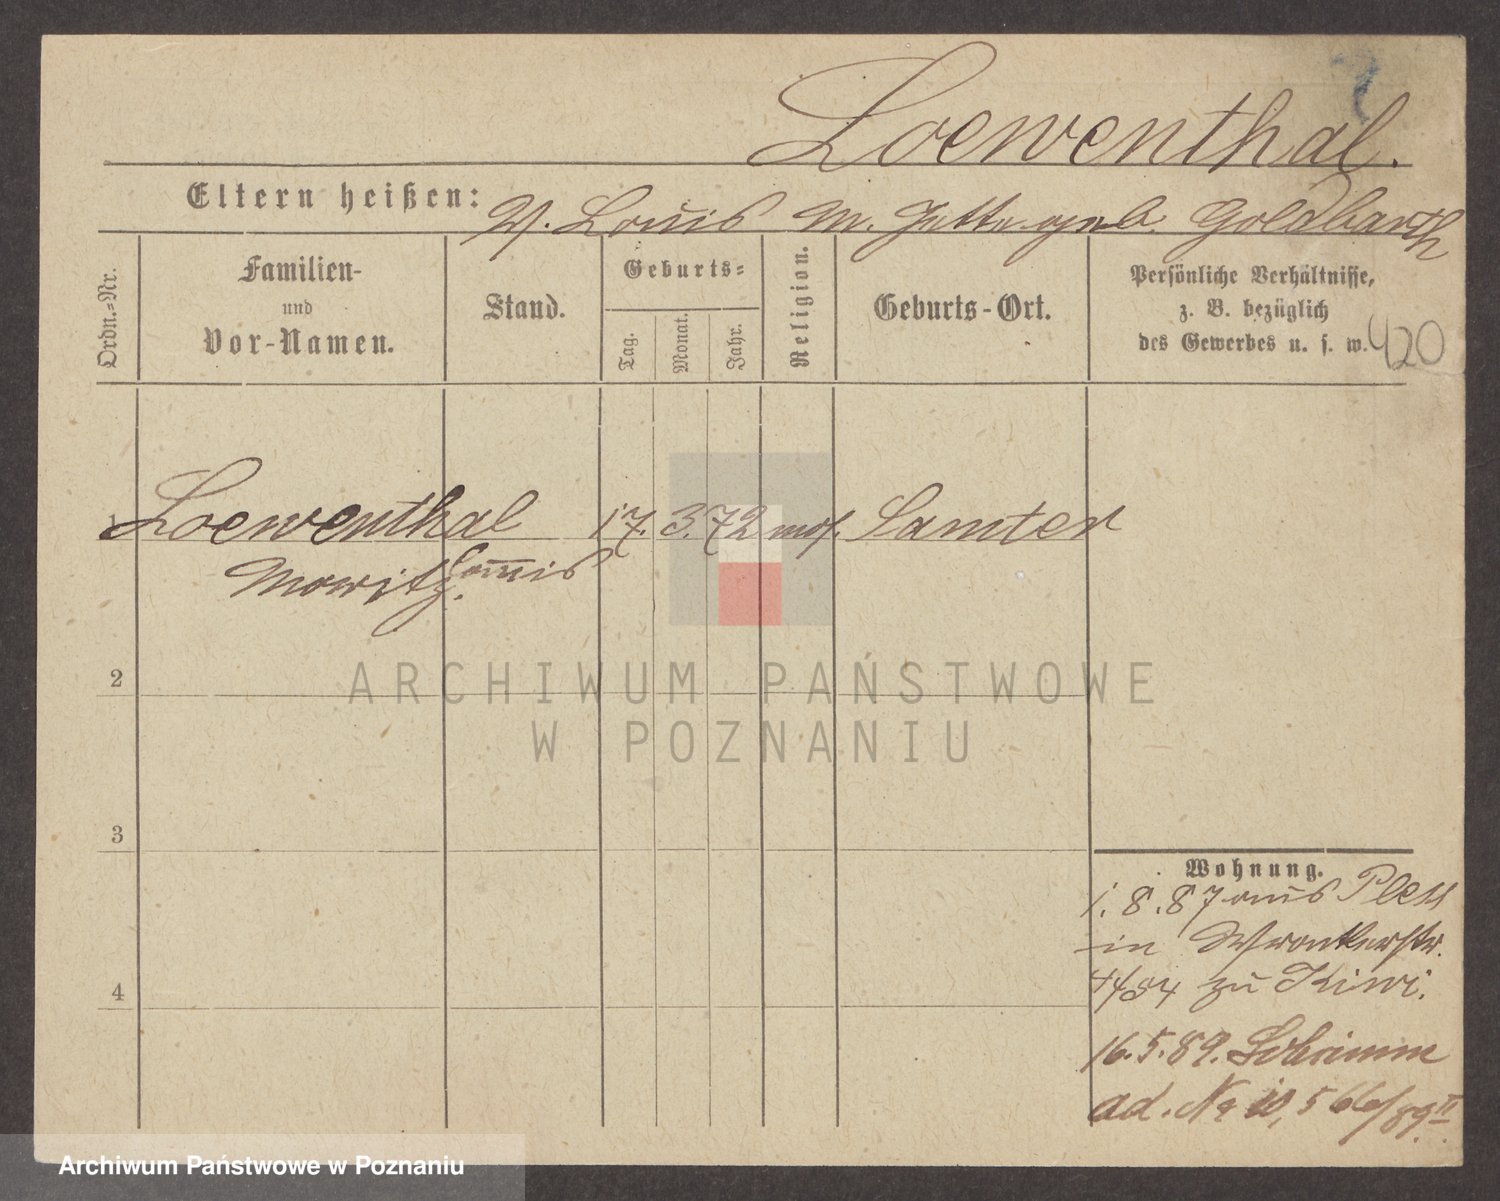 Loewenthal.
Eltern heißen: V. Louis M. Jette geb. Goldbarth
Ordn.=Nr.
Familien-
und
Vor-Namen.
Stand.
Geburts=
Tag.
Monat.
Jahr.
Religion.
Geburts-Ort.
Persönliche Verhältnisse,
z. B. bezüglich
des Gewerbes u. s. w.
420
1 Loewenthal 17. 3. 72 mos. Samter
Moritz. Louis
2
3
4
Wohnung.
1. 8. 87 aus Pless
in Wronkerstr.
4/54 zu Kiwi.
16. 5. 89. Schrimm
ad. No 10,566/89 II.
ARCHIWUM PAŃSTWOWE
W POZNANIU
Archiwum Państwowe w Poznaniu